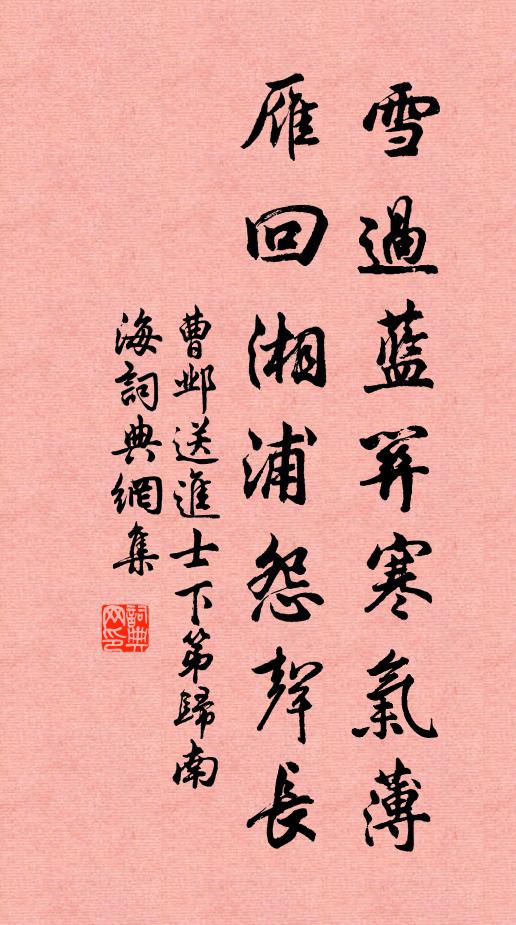 雪過藍關寒氣薄
雁回湘浦怨聲長
曹邺送進士下第歸南
海詞典網集
詞典
网印